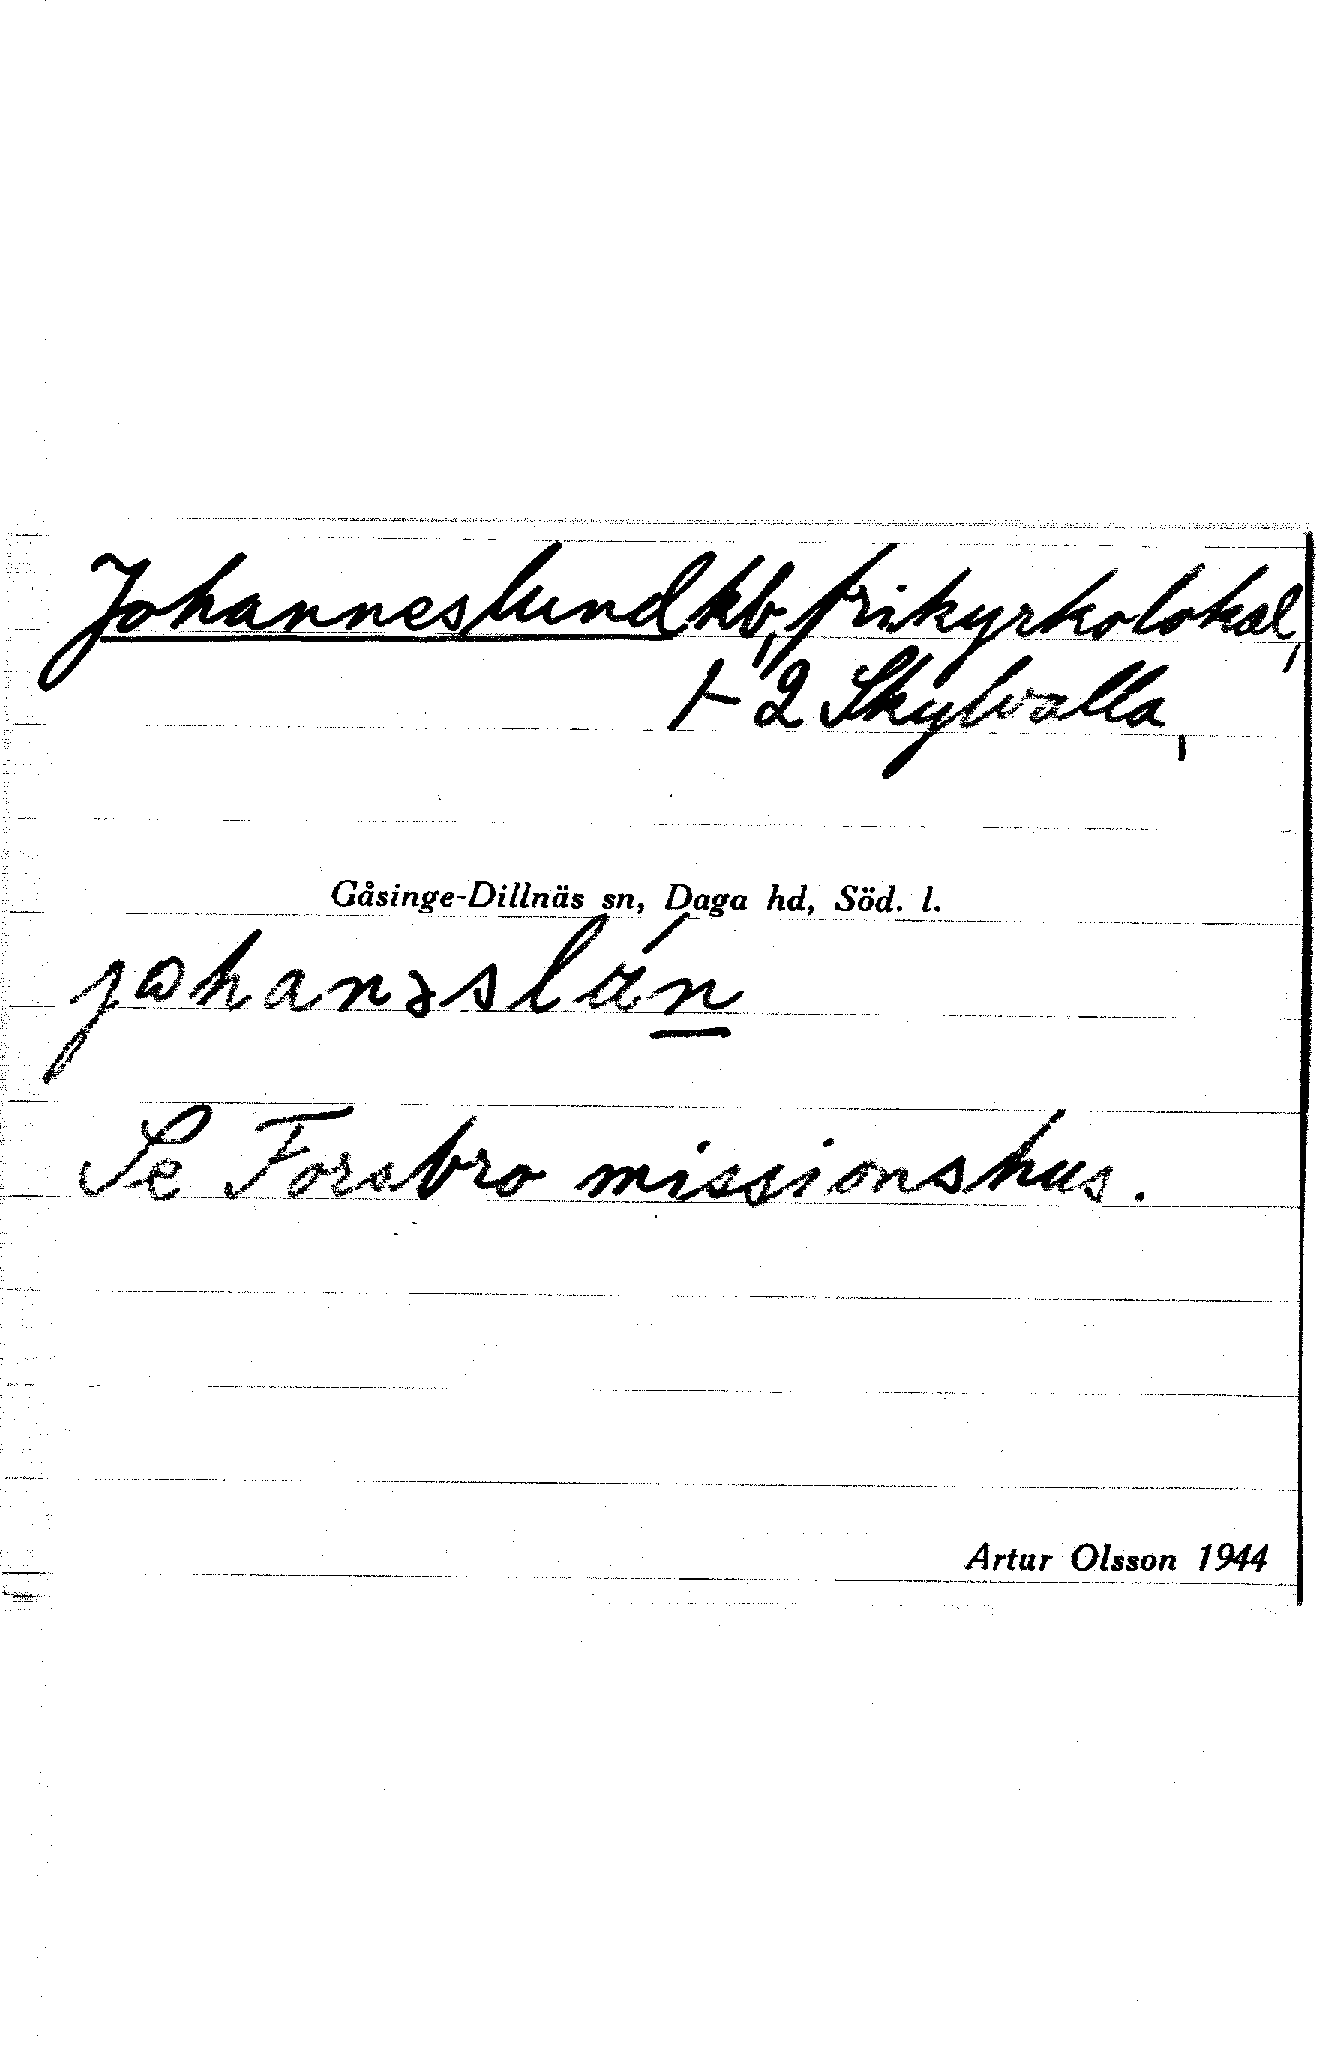 Johanneslund kb, frikyrkolokal,
t 2 Skylvalla,
Gåsinge-Dillnäs sn, Daga hd, Söd. l.
Se Forsbro missionshus.
Artur Olsson 1944